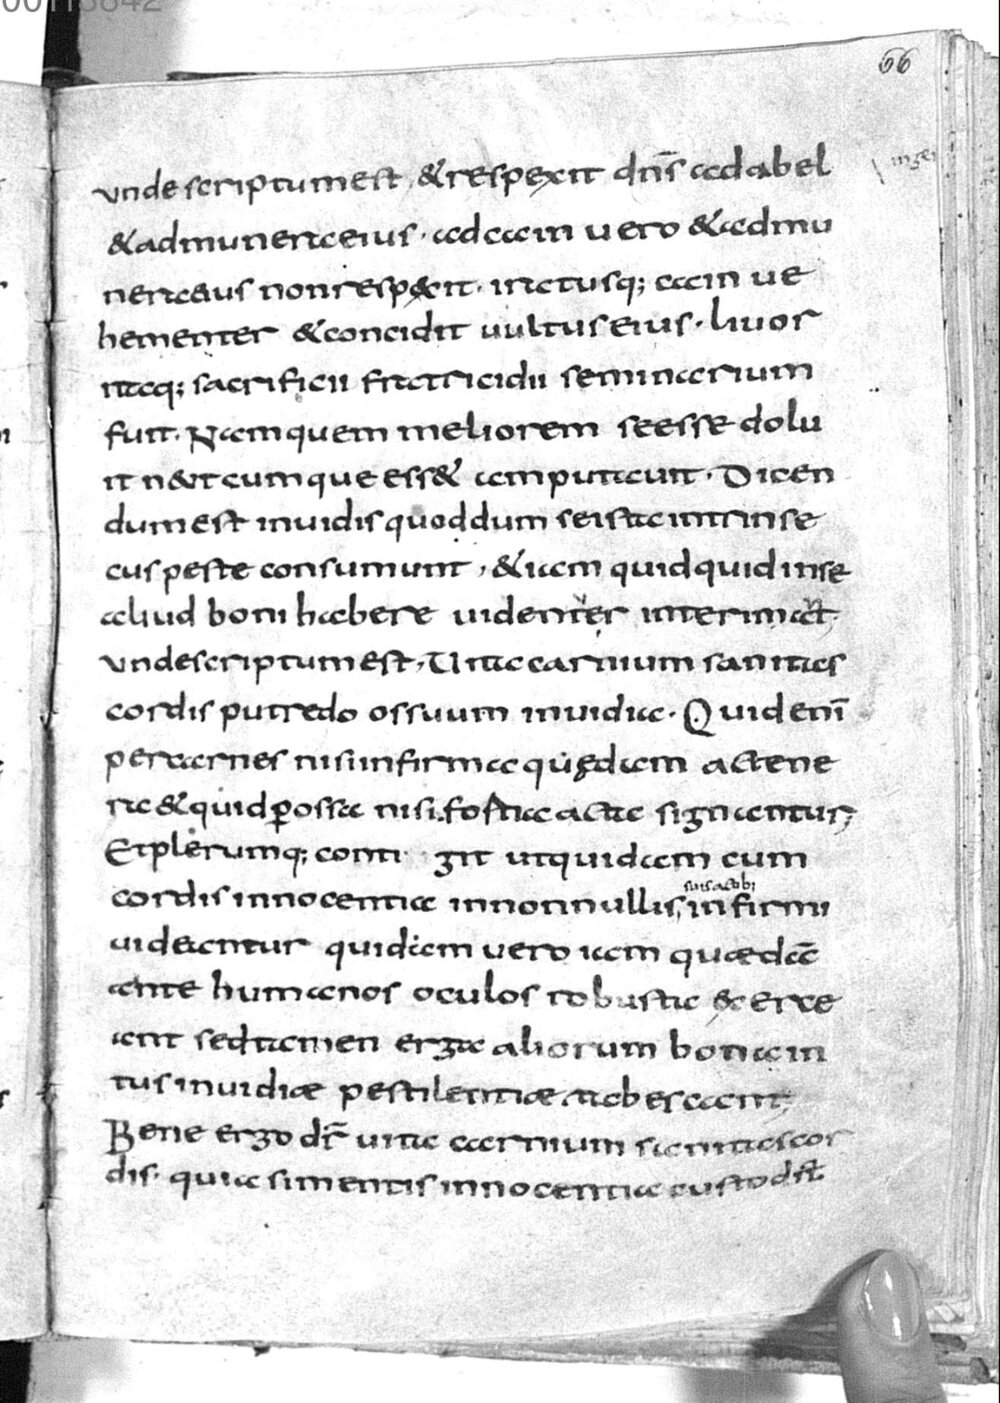 00113842
66
unde scriptum est, & respexit dn̄s ad abel
& ad munera eius · ad cain vero & ad mu
nera eius non respexit · iratusq; cain ve
hementer & concidit uultus eius · liuor
itaq; sacrificii fratricidii seminarium
fuit · Nam quem meliorem se esse dolu
it n& utcumque ess& amputauit · Dicen
dum est inuidis quod dum se ista intrinse
cus peste consumunt, & iam quidquid in se
aliud boni habere uidentur interimunt ·
unde scriptum est, Uita carnium sanitas
cordis putredo ossuum inuidia · Quid enī
per carnes nisi infirma quędam ac tene
ra & quid p̄ ossa nisi fortia acta signantur;
Et plerumq; contigit ut quidam cum
cordis innocentia in nonnullis infirmi
suis actibꝫ
uideantur quidam vero iam quædā
ante humanos oculos robusta exerce
ant sed tamen erga aliorum bona in
tus inuidiæ pestilentiæ tabescant;
Bene ergo dr̄ uita carnium sanitas cor
dis · quia si mentis innocentia custodit̄